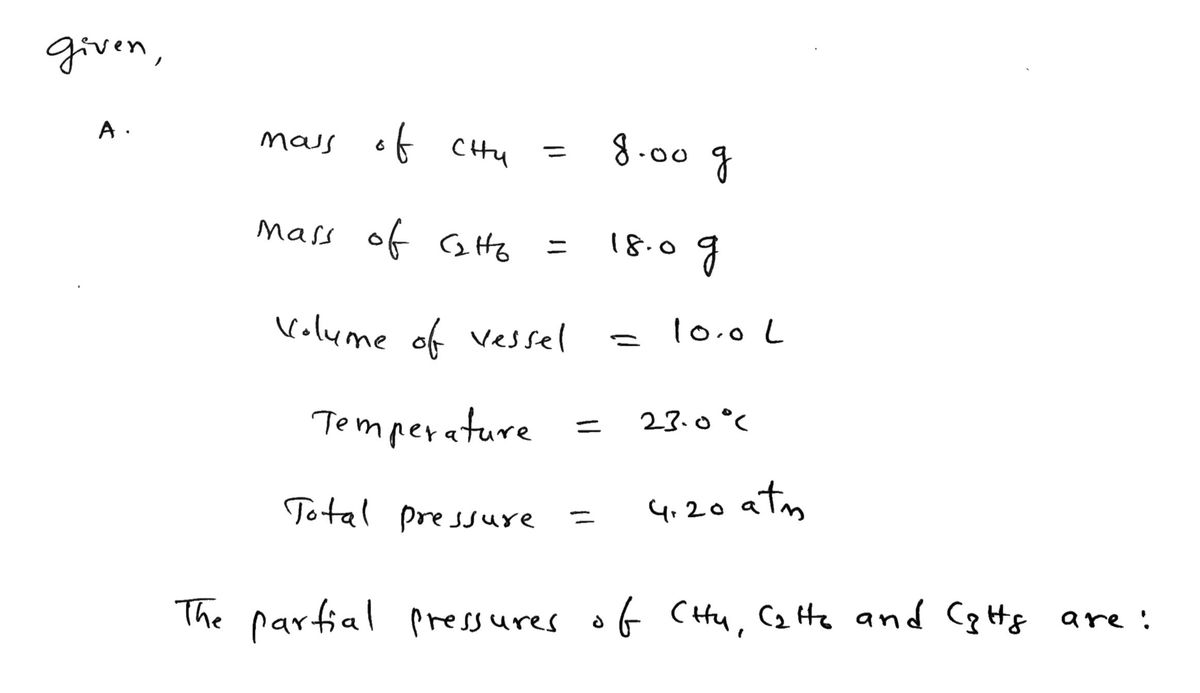 given,
A. mass of CH4 = 8.00 g
Mass of C2H6 = 18.0 g
Volume of vessel = 10.0 L
Temperature = 23.0°C
Total pressure = 4.20 atm
The partial pressures of CH4, C2H6 and C3H8 are: